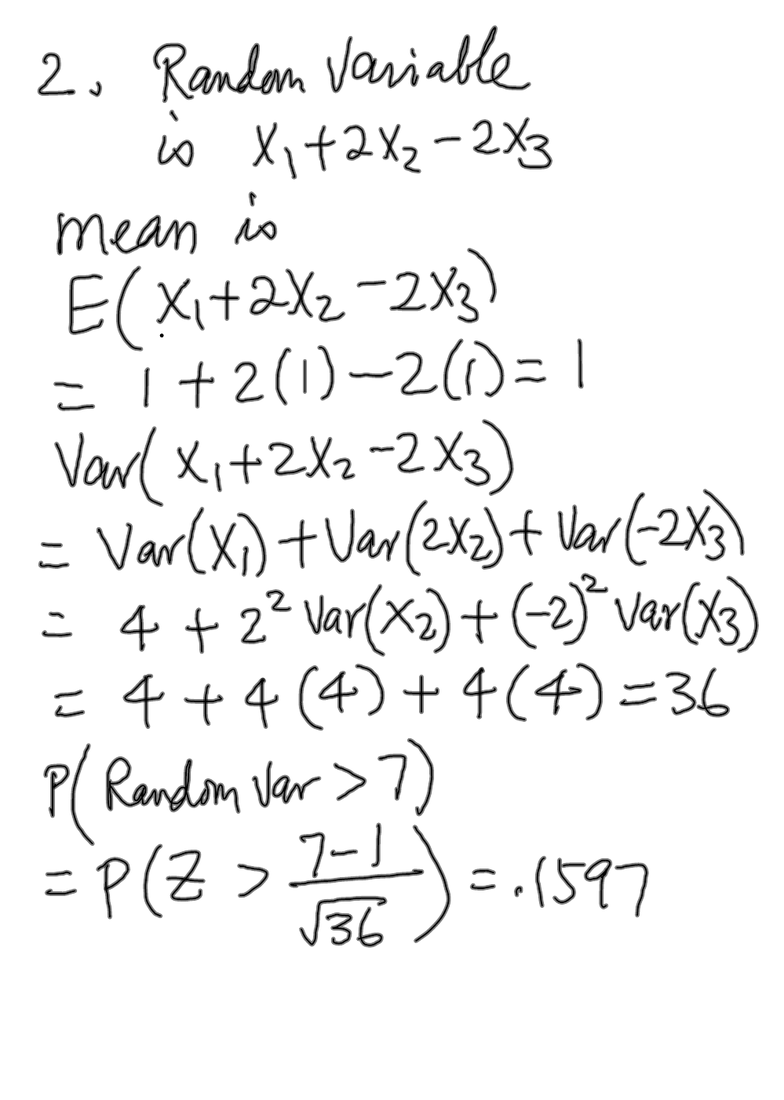 2. Random Variable
is X₁+2X₂-2X₃
mean is
E(X₁+2X₂-2X₃)
= 1+2(1)-2(1)=1
Var(X₁+2X₂-2X₃)
= Var(X₁)+Var(2X₂)+Var(-2X₃)
= 4+2²Var(X₂)+(-2)²Var(X₃)
= 4+4(4)+4(4)=36
P(Random Var>7)
=P(Z > (7-1)/√36) = .1597